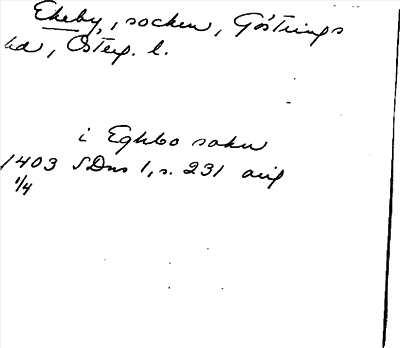 Ekeby, socken, Göstrings
hd, Österg. l.
i Eghbo sokn
1403 SDns 1, s. 231 avig
1/4